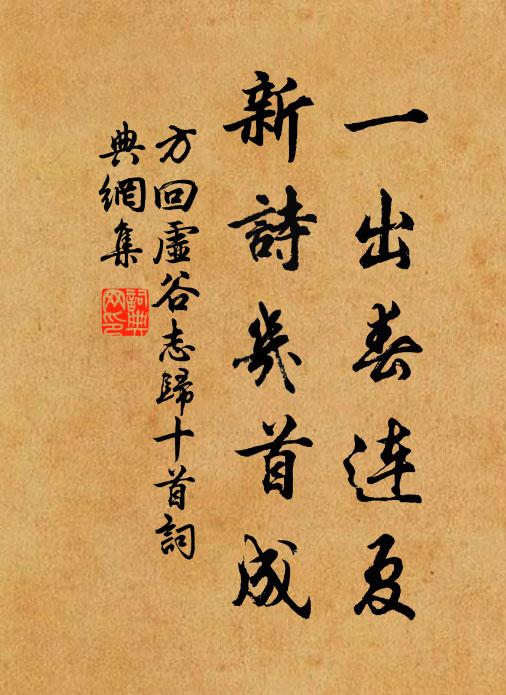 一出春連夏
新詩幾首成
方回虛谷志歸十首詞
典網集
詞典网印